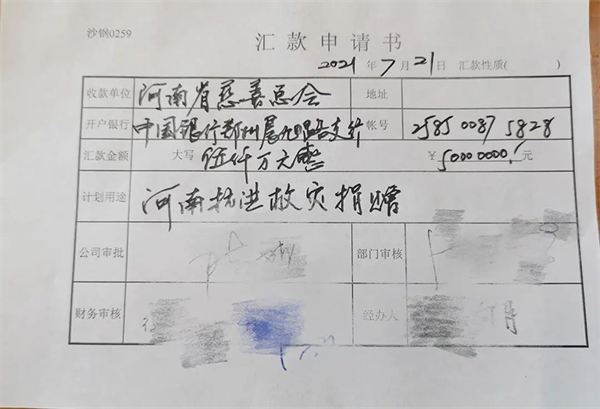 沙钢0259
汇款申请书
2021年7月21日 汇款性质( )
收款单位 河南省慈善总会 地址
开户银行 中国银行郑州晨旭路支行 帐号 2585 0087 5828
汇款金额 大写 伍仟万元整 ¥50000000.元
计划用途 河南抗洪救灾捐赠
公司审批 部门审核
财务审核 经办人